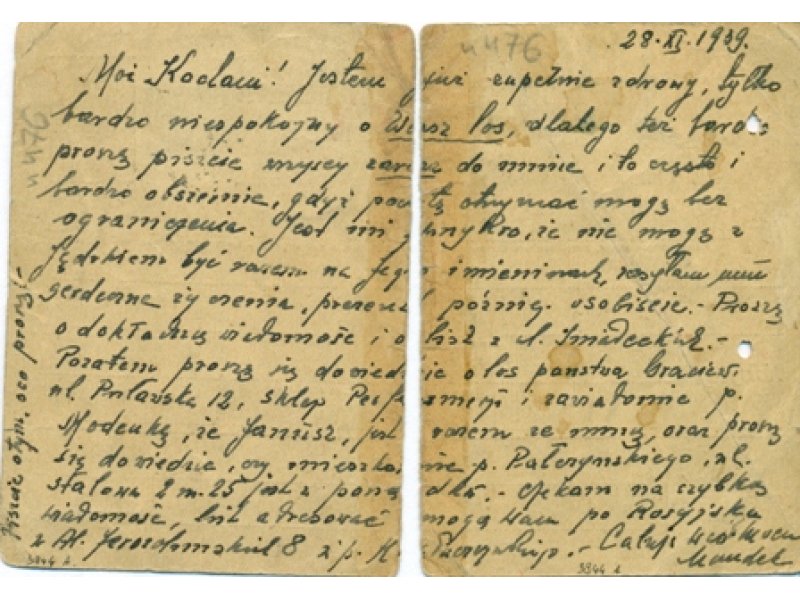 28. XI. 1939.
Moi Kochani! Jestem już zupełnie zdrowy, tylko
bardzo niespokojny o Wasz los, dlatego też bardzo
proszę piszcie wszyscy zaraz do mnie i to często i
bardzo obszernie, gdyż pocztę otrzymać mogę bez
ograniczenia. Jest mi przykro, że nie mogę z
być razem na Jego imieninach, zasyłam mu
serdeczne życzenia, później osobiście. - Proszę
o dokładną wiadomość i o z ul. Smoleckiej. -
Pozatem proszę się dowiedzieć o los państwa
ul. Puławska 12, sklep Perfumery i zawiadomić p.
że Janusz, jest razem ze mną, oraz proszę
się dowiedzieć, czy mieszkanie p. Pałczyńskiego, ul.
Stalowa 2 m. 25 jest w porządku. - Czekam na szybką
wiadomość, list adresować mogą Wam po Rosyjsku
z Al. Jerozolimskich 8
Piszcie o tym, oco proszę! -
n 476
n 476
3844 r.
3844 r